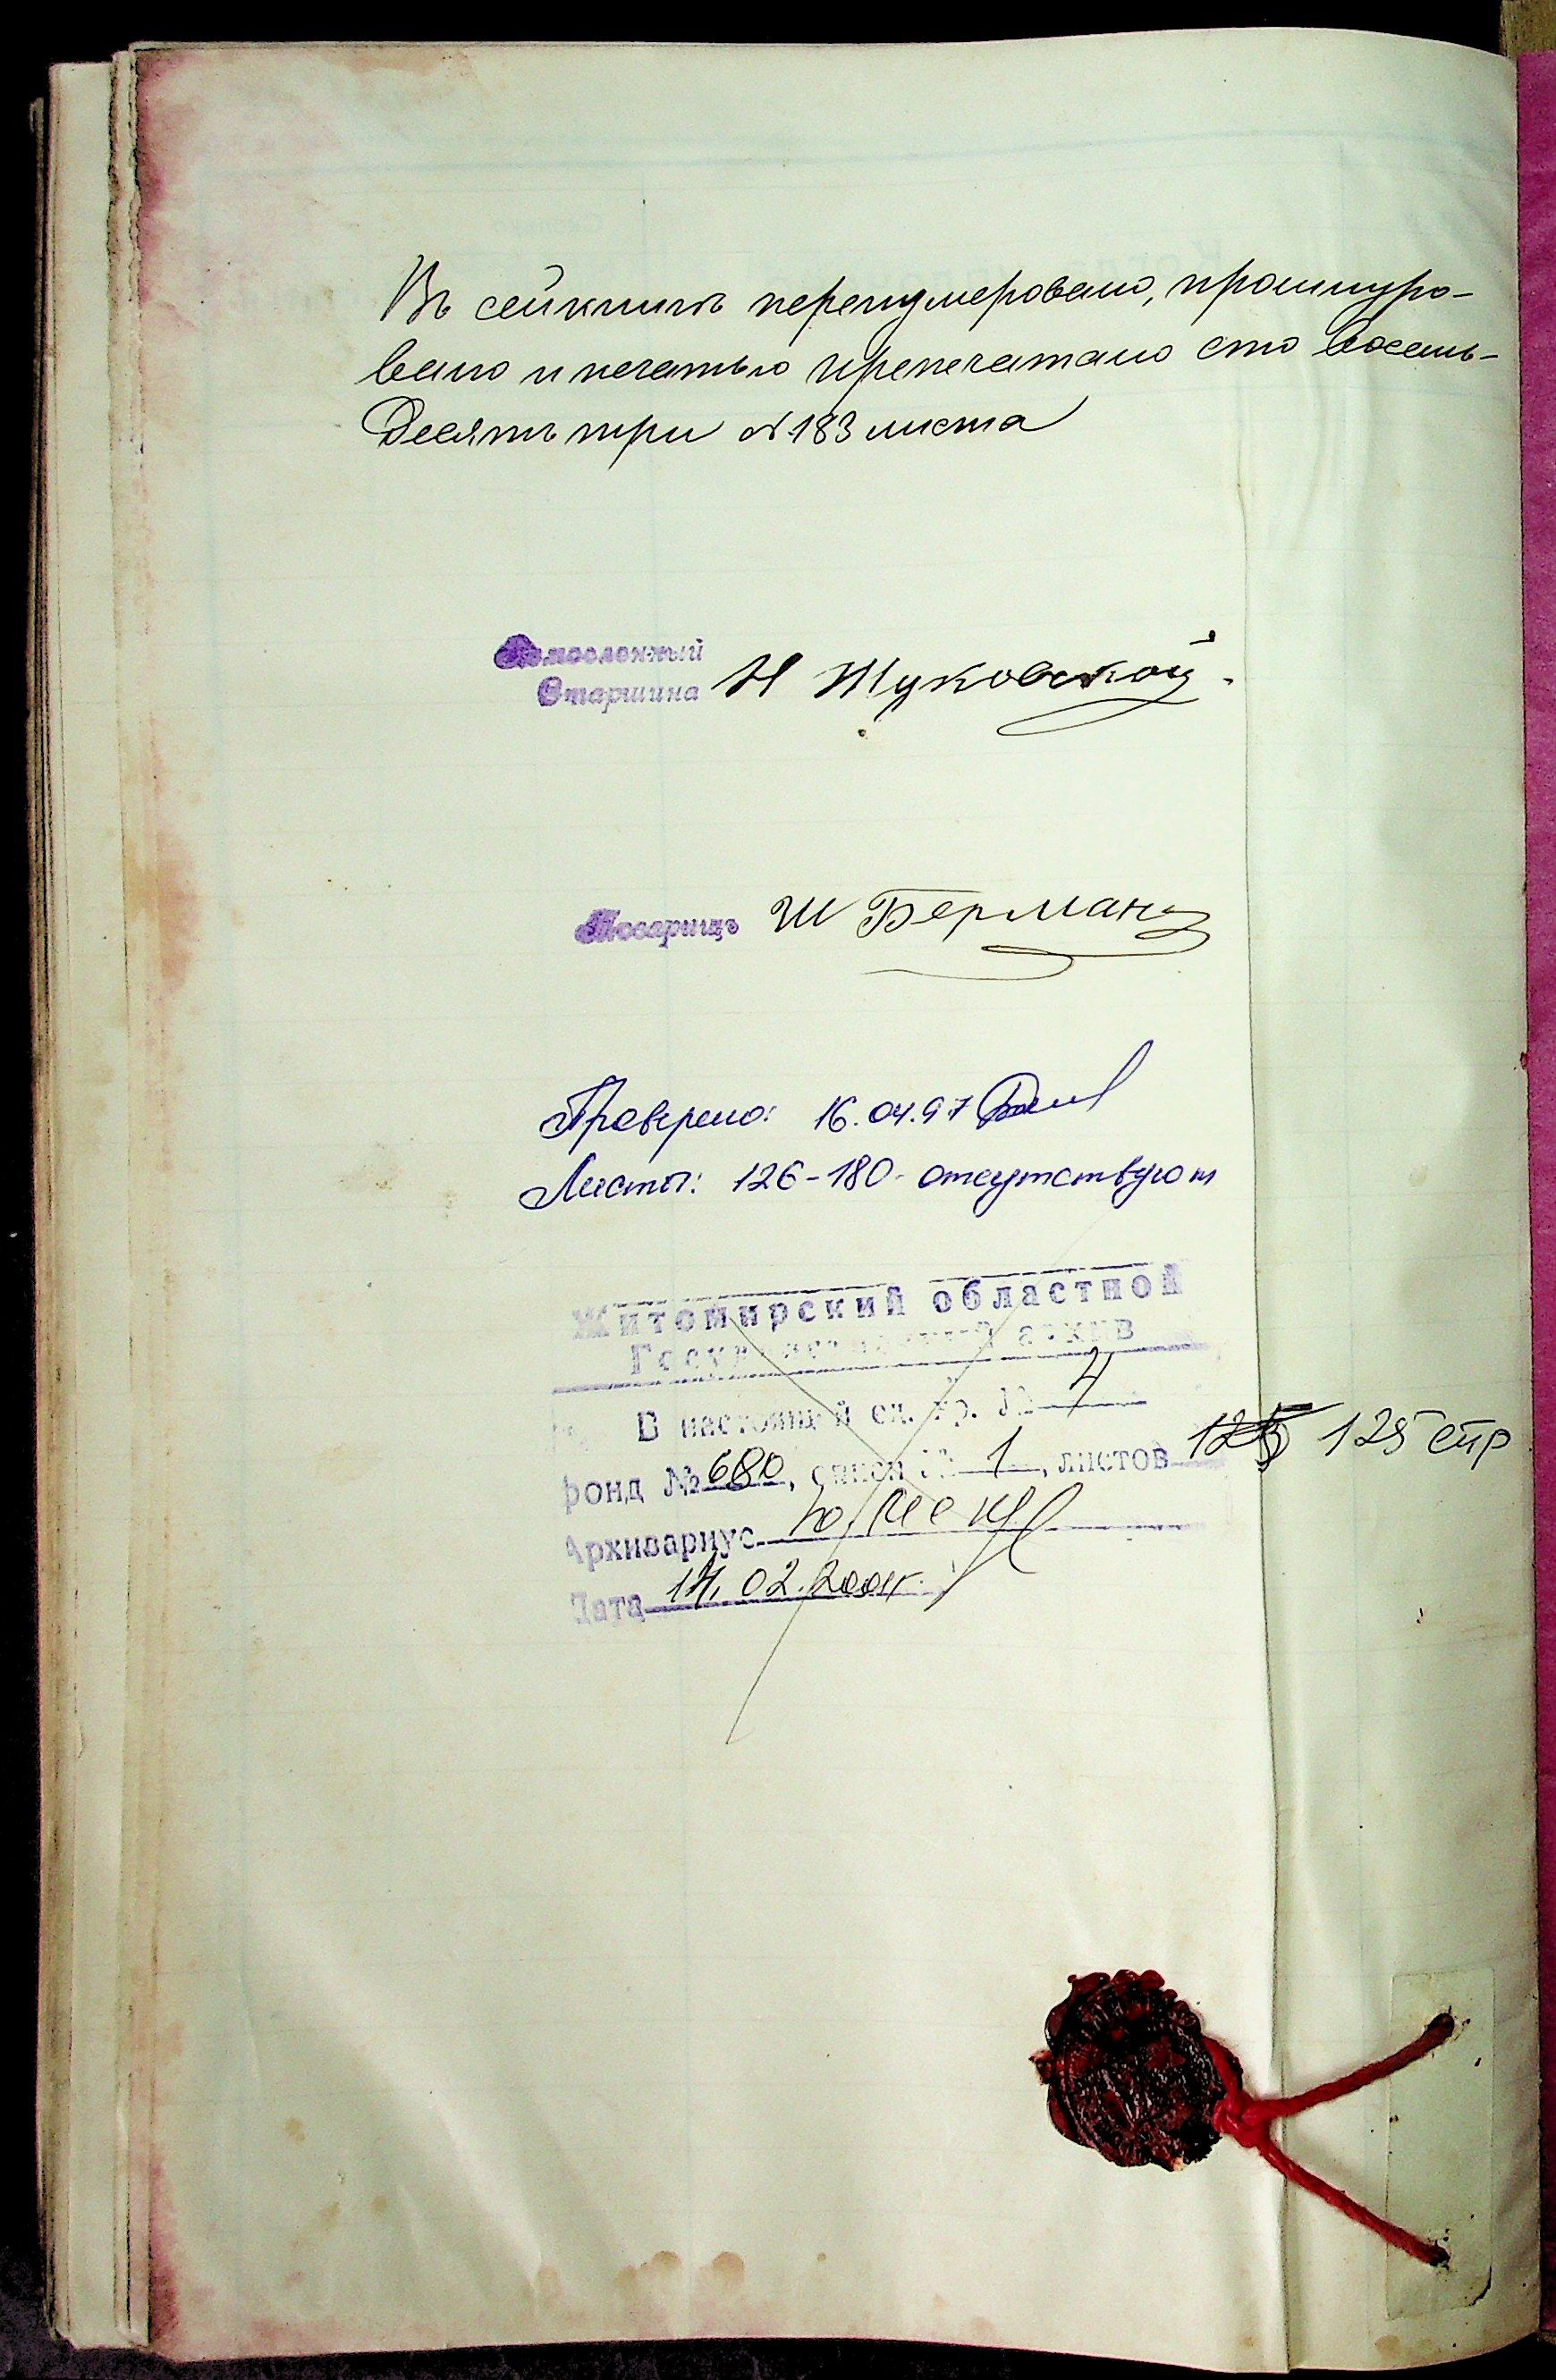 Въ сей книгѣ перенумеровано, прошнуро-
вано и печатью припечатано сто восемь-
десятъ три № 183 листа
Ремесленный
Старшина Н Жуковской.
Товарищъ Ш Берманъ
Проверено: 16.04.97
Листы: 126-180 - отсутствуют
Житомирский областной
Государственный архив
В настоящей ед. хр. № 4
фонд № 680, описи № 1, листов 125 125 стр
Архивариус
Дата 14.02.2001г.